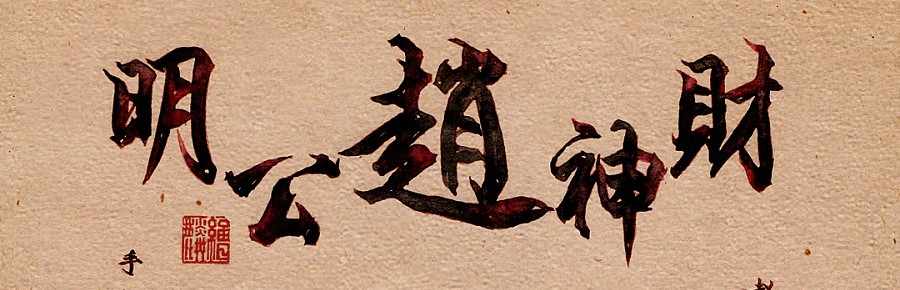 財神趙公明
手